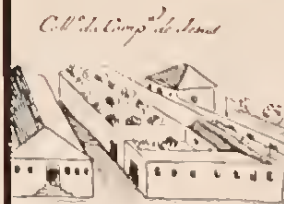 Coll.º da Comp.ª de Jesus